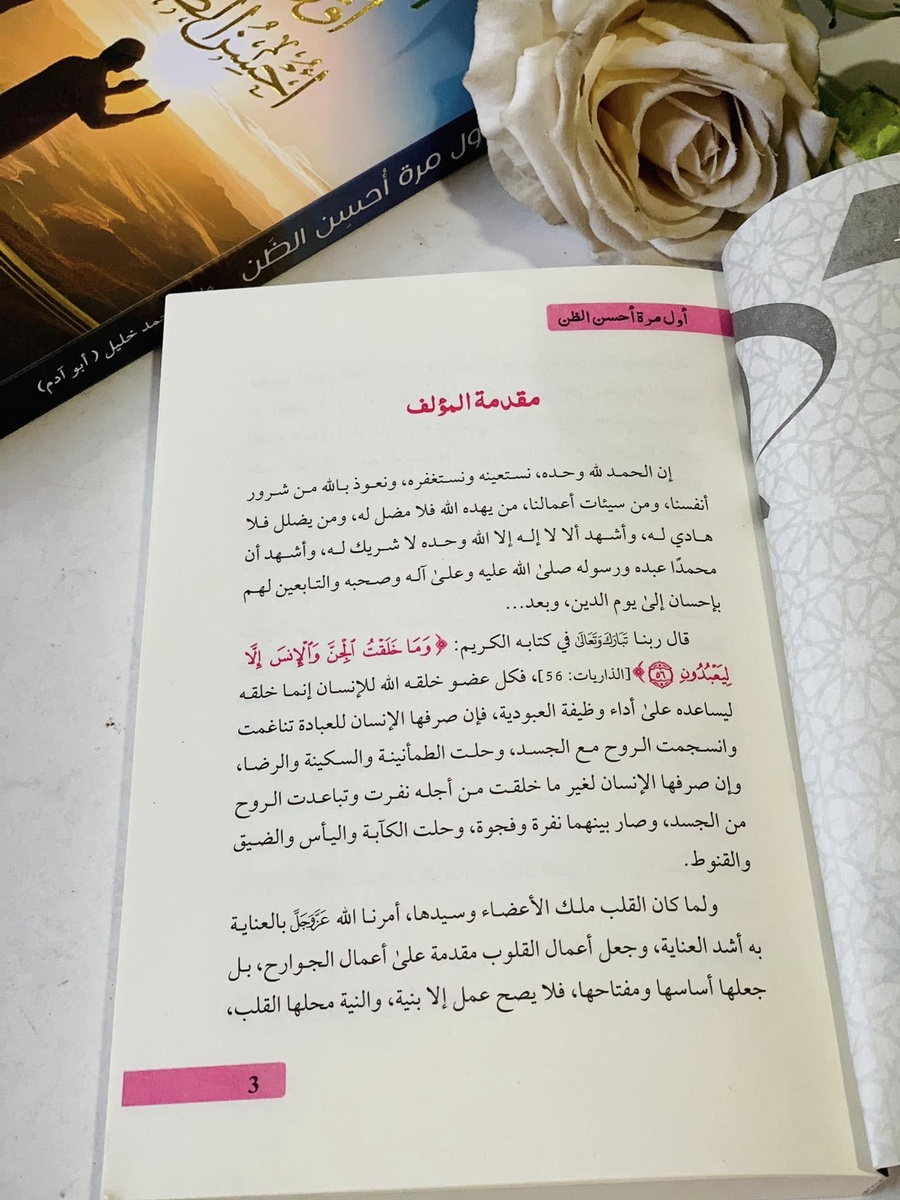 أحسن الظن
ول مرة أحسِن الظَن
مد خليل (أبو آدم)
أول مرة أحسن الظن
مقدمة المؤلف
إن الحمد لله وحده، نستعينه ونستغفره، ونعوذ بالله من شرور
أنفسنا، ومن سيئات أعمالنا، من يهده الله فلا مضل له، ومن يضلل فلا
هادي له، وأشهد ألا لا إله إلا الله وحده لا شريك له، وأشهد أن
محمدًا عبده ورسوله صلىٰ الله عليه وعلىٰ آله وصحبه والتابعين لهم
بإحسان إلىٰ يوم الدين، وبعد...
قال ربنا تَبَارَكَ وَتَعَالَىٰ في كتابه الكريم: ﴿وَمَا خَلَقْتُ ٱلْجِنَّ وَٱلْإِنسَ إِلَّا
لِيَعْبُدُونِ ٥٦﴾ [الذاريات: 56]، فكل عضو خلقه الله للإنسان إنما خلقه
ليساعده علىٰ أداء وظيفة العبودية، فإن صرفها الإنسان للعبادة تناغمت
وانسجمت الروح مع الجسد، وحلت الطمأنينة والسكينة والرضا،
وإن صرفها الإنسان لغير ما خلقت من أجله نفرت وتباعدت الروح
من الجسد، وصار بينهما نفرة وفجوة، وحلت الكآبة واليأس والضيق
والقنوط.
ولما كان القلب ملك الأعضاء وسيدها، أمرنا الله عَزَّوَجَلَّ بالعناية
به أشد العناية، وجعل أعمال القلوب مقدمة علىٰ أعمال الجوارح، بل
جعلها أساسها ومفتاحها، فلا يصح عمل إلا بنية، والنية محلها القلب،
3